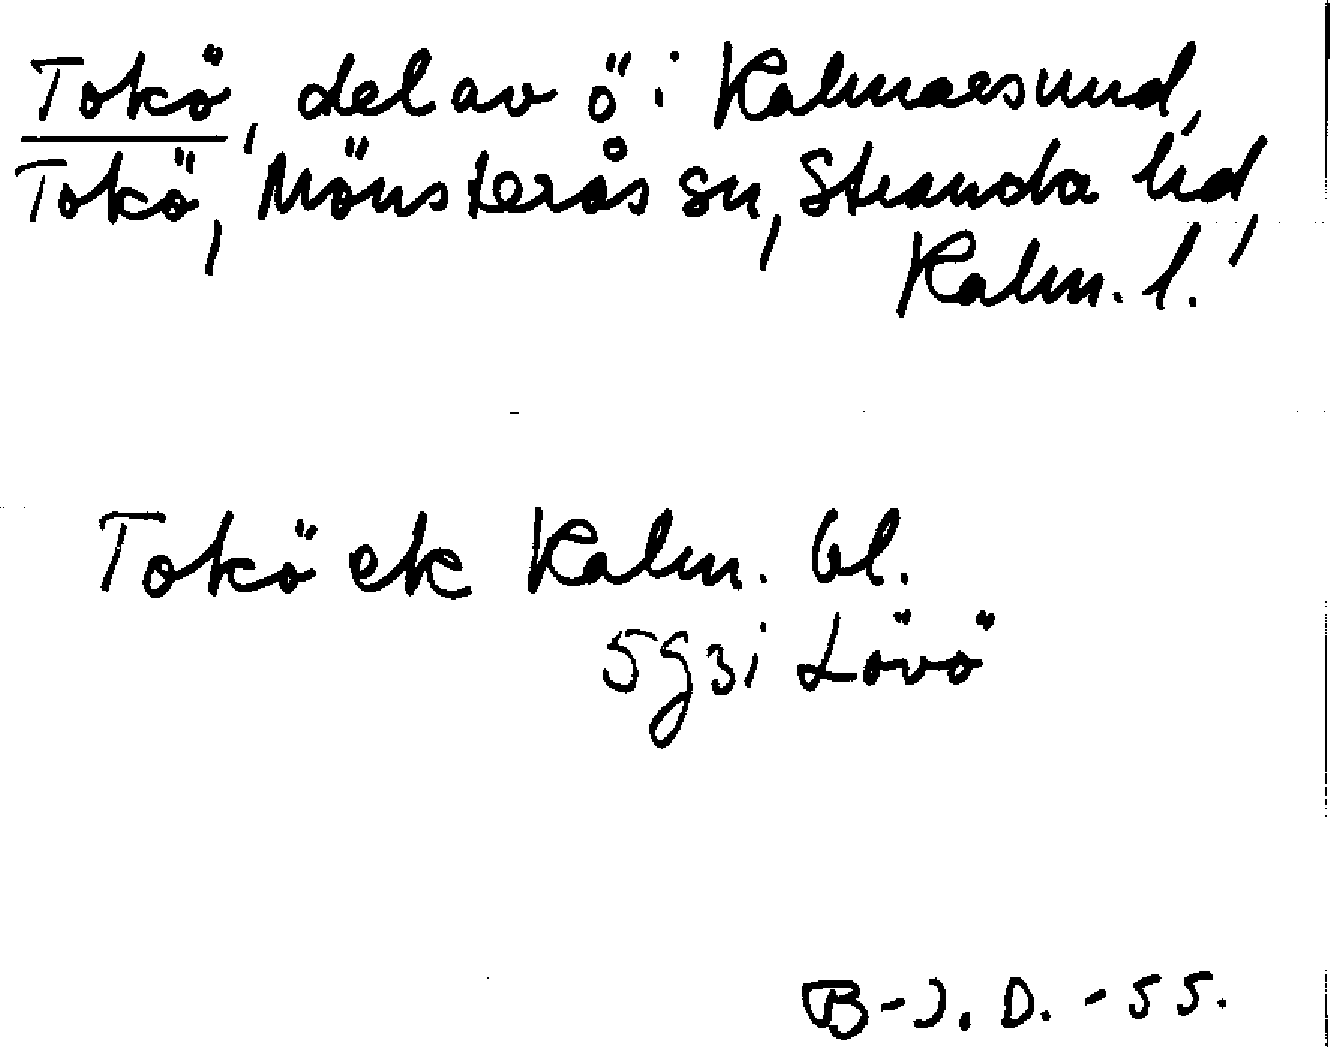 Tokö, del av ö i Kalmarsund,
Tokö, Mönsterås sn, Stranda hd,
Kalm. l.
Tokö ek Kalm. bl.
5g3i Lövö
B-J. D. -55.